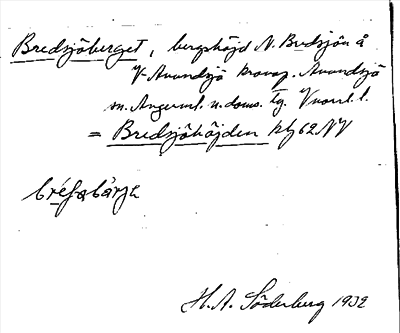 Bredsjöberget, bergshöjd N. Bredsjön å
V Anundsjö kronop. Anundsjö
sn. Ångerml. n. doms. tg. Vnorrl. l.
= Bredsjöhöjden kbl 62 NV
H. A. Söderberg 1932